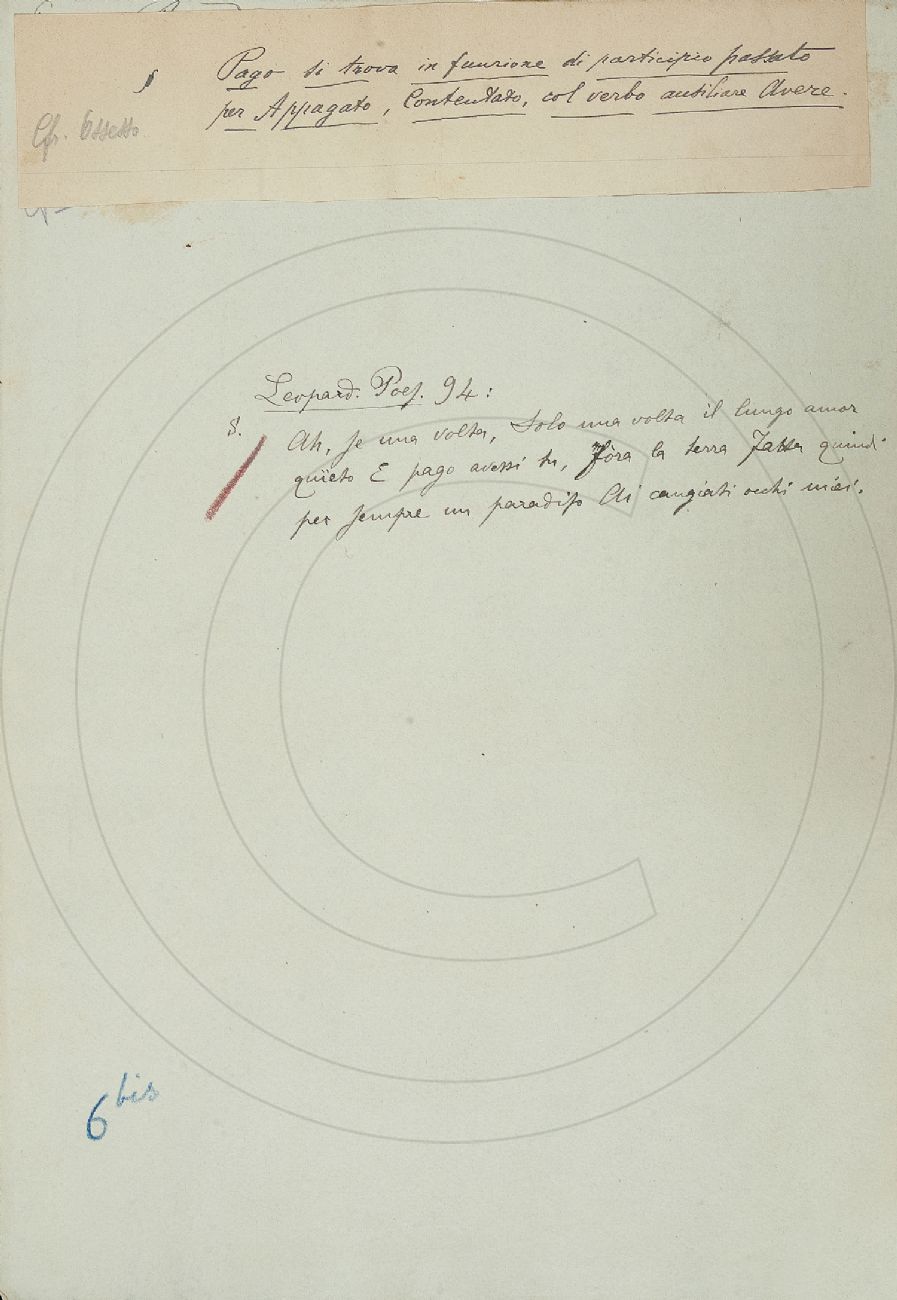 § Pago si trova in funzione di participio passato
per Appagato, Contentato, col verbo ausiliare Avere.
Cfr.
Leopard. Poes. 94:
§. Ah, se una volta, Solo una volta il lungo amor
quïeto E pago avessi tu, Fòra la terra Fatta quindi
per sempre un paradiso Ai cangiati occhi miei.
6 bis